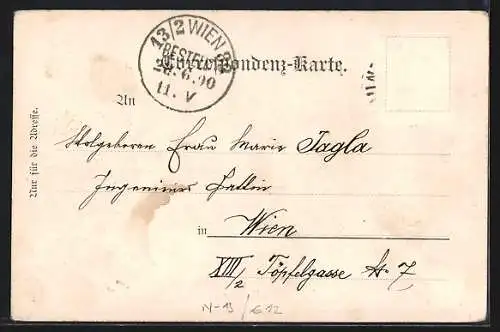 13/2 WIEN
BESTELLT
6.90
11. V
Correspondenz-Karte.
An
Nur für die Adresse.
Wolgeboren Frau Marie Tagla
Ingenieurs Gattin
in Wien
XIII/2 Töpfelgasse No 7